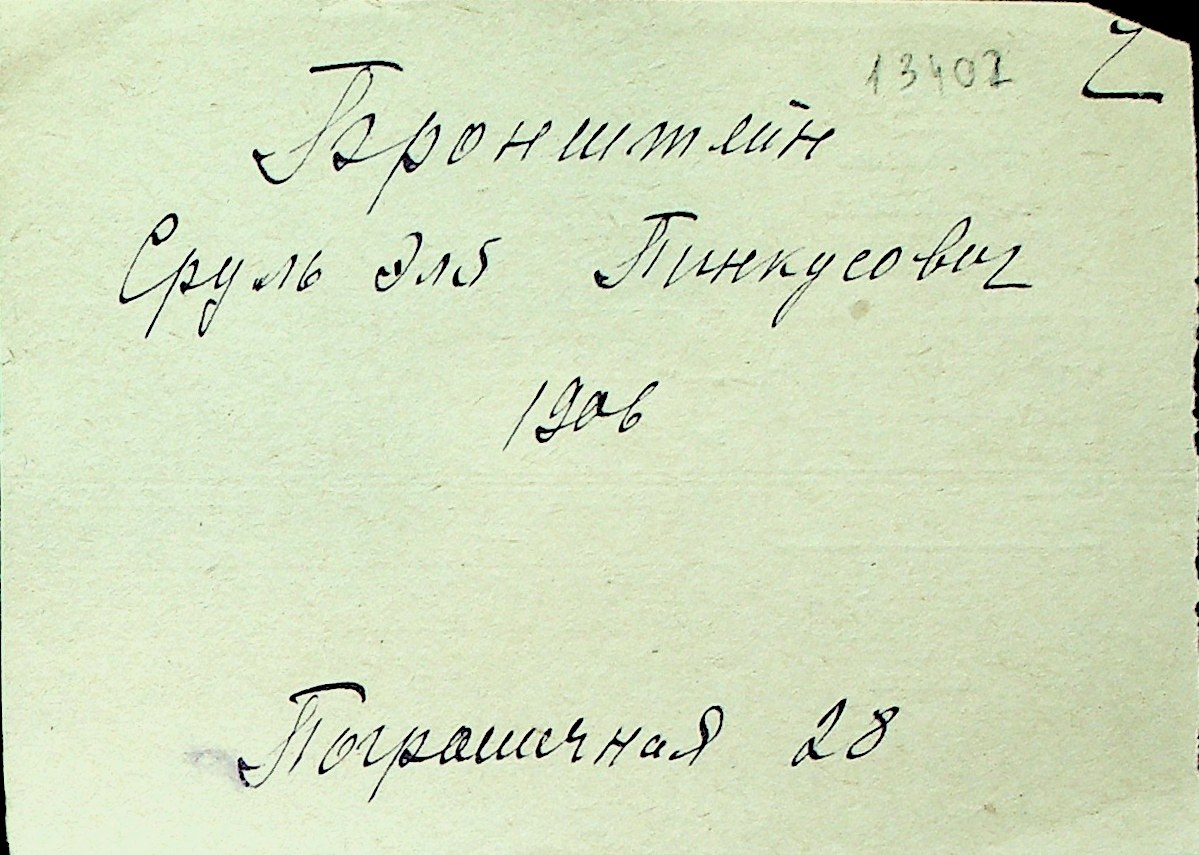 13402
Бронштейн
Сруль Эля Пинкусович
1906
Пограничная 28